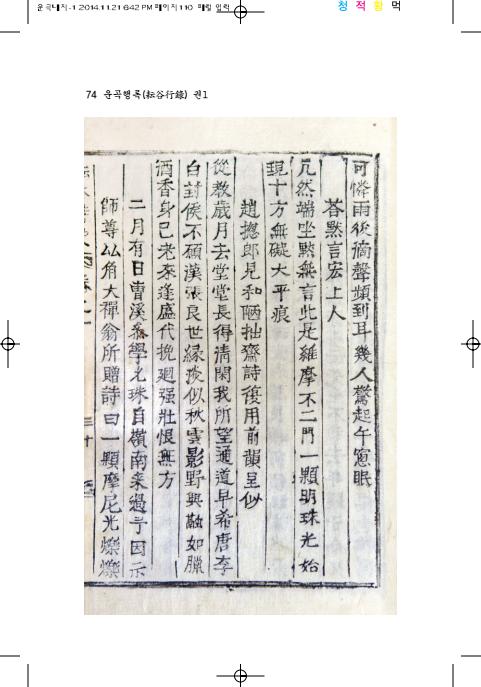 운곡대지-1 2014.11.21 6:42 PM 페이지110 매킨 입력
청 적 황 먹
74 운곡행록(耘谷行錄) 권1
可憐雨後滴聲頻到耳幾人驚起午窓眠
答默言宏上人
兀然端坐黙無言此是維摩不二門一顆明珠光始
現十方無礙大平痕
趙摠郎見和陋拙齋詩復用前韻呈似
從教歲月去堂堂長得清閑我所望通道早希唐李
白封侯不願漢張良世緣淡似秋雲影野興融如臘
酒香身已老來逢盛代挽廻强壯恨無方
二月有日曹溪叅學允珠自嶺南來過予因示
師尊仏角大禪翁所贈詩曰一顆摩尼光爍爍